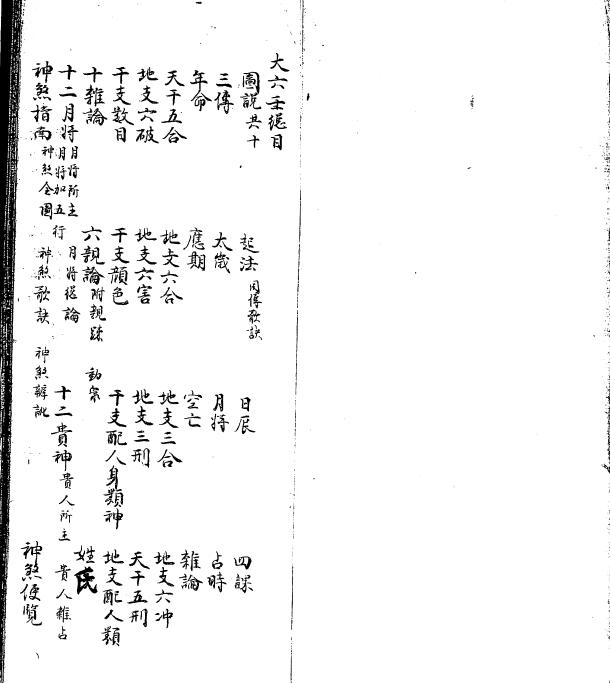 大六壬總目
圖說共十 起法附傳歌訣 日辰 四課
三傳 太歲 月將 占時
年命 應期 空亡 雜論
天干五合 地支六合 地支三合 地支六冲
地支六破 地支六害 地支三刑 天干五刑
干支數目 干支顏色 干支配人身類神 地支配人類
十雜論 六親論附親疎 姓氏
十二月將月將所主月將加五行 月將總論 十二貴神貴人所主 貴人雜占
神煞指南神煞全圖 神煞歌訣 神煞辯訛 神煞便覽